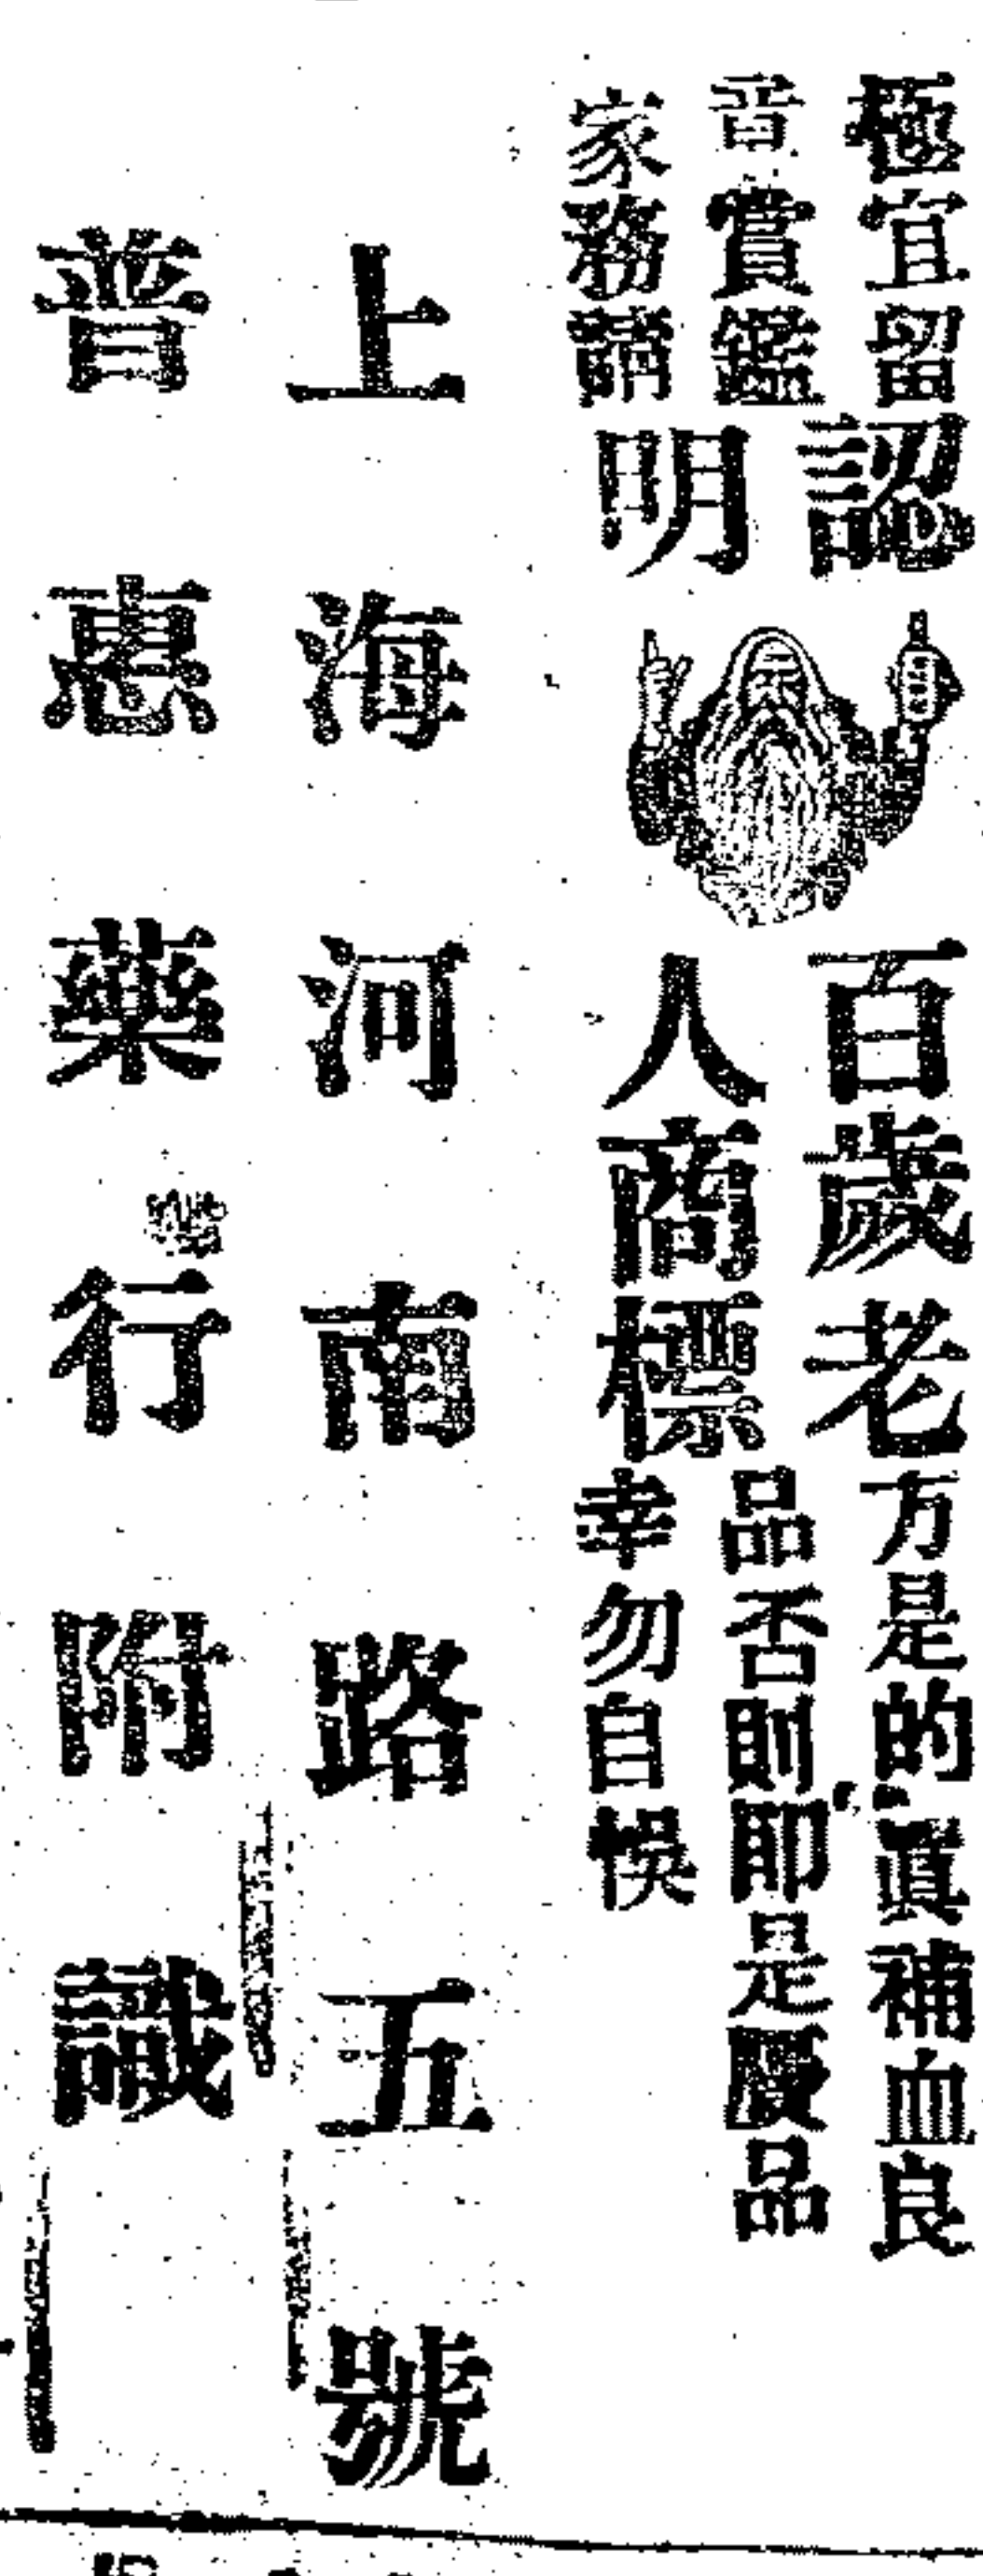 極宜留
意賞鑑
家務請
認
明
百歲老
人商標
方是的眞補血良
品否則卽是贋品
幸勿自悞
上海河南路五號
普惠藥行附識